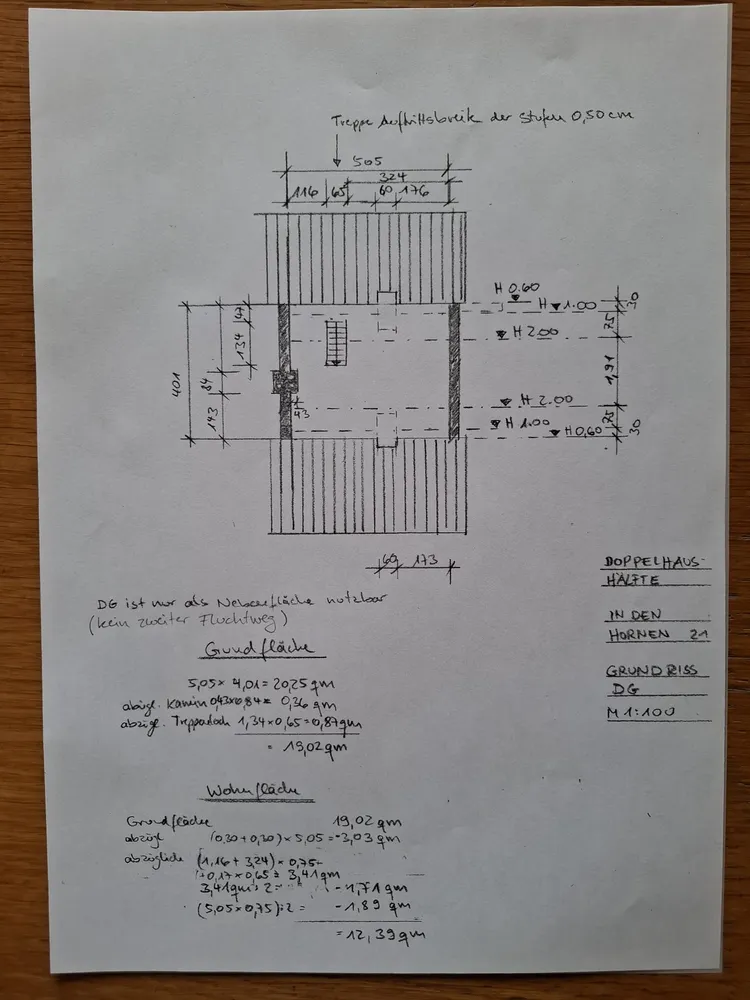 Treppe Auftrittsbreite der Stufen 0,50 cm
505
324
116 65 60 176
H 0.60
H 1.00
H 2.00
30
75
1,91
75
30
47
134
84
143
401
43
H 2.00
H 1.00
H 0,60
60 173
DOPPELHAUS-
HÄLFTE
IN DEN
HORNEN 21
GRUNDRISS
DG
M 1:100
DG ist nur als Nebenfläche nutzbar
(kein zweiter Fluchtweg)
Grundfläche
5,05 x 4,01 = 20,25 qm
abzügl. Kamin 0,43x0,84 = 0,36 qm
abzügl. Treppenloch 1,34 x 0,65 = 0,87 qm
= 19,02 qm
Wohnfläche
Grundfläche 19,02 qm
abzügl (0,30 + 0,30) x 5,05 = -3,03 qm
abzüglich (1,16 + 3,24) x 0,75 +
+ 0,17 x 0,65 = 3,41 qm
3,41 qm : 2 = - 1,71 qm
(5,05 x 0,75) : 2 = - 1,89 qm
= 12,39 qm